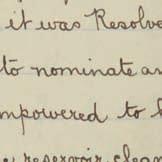 it was Resolve
to nominate an
mpowered to
reservoir clea